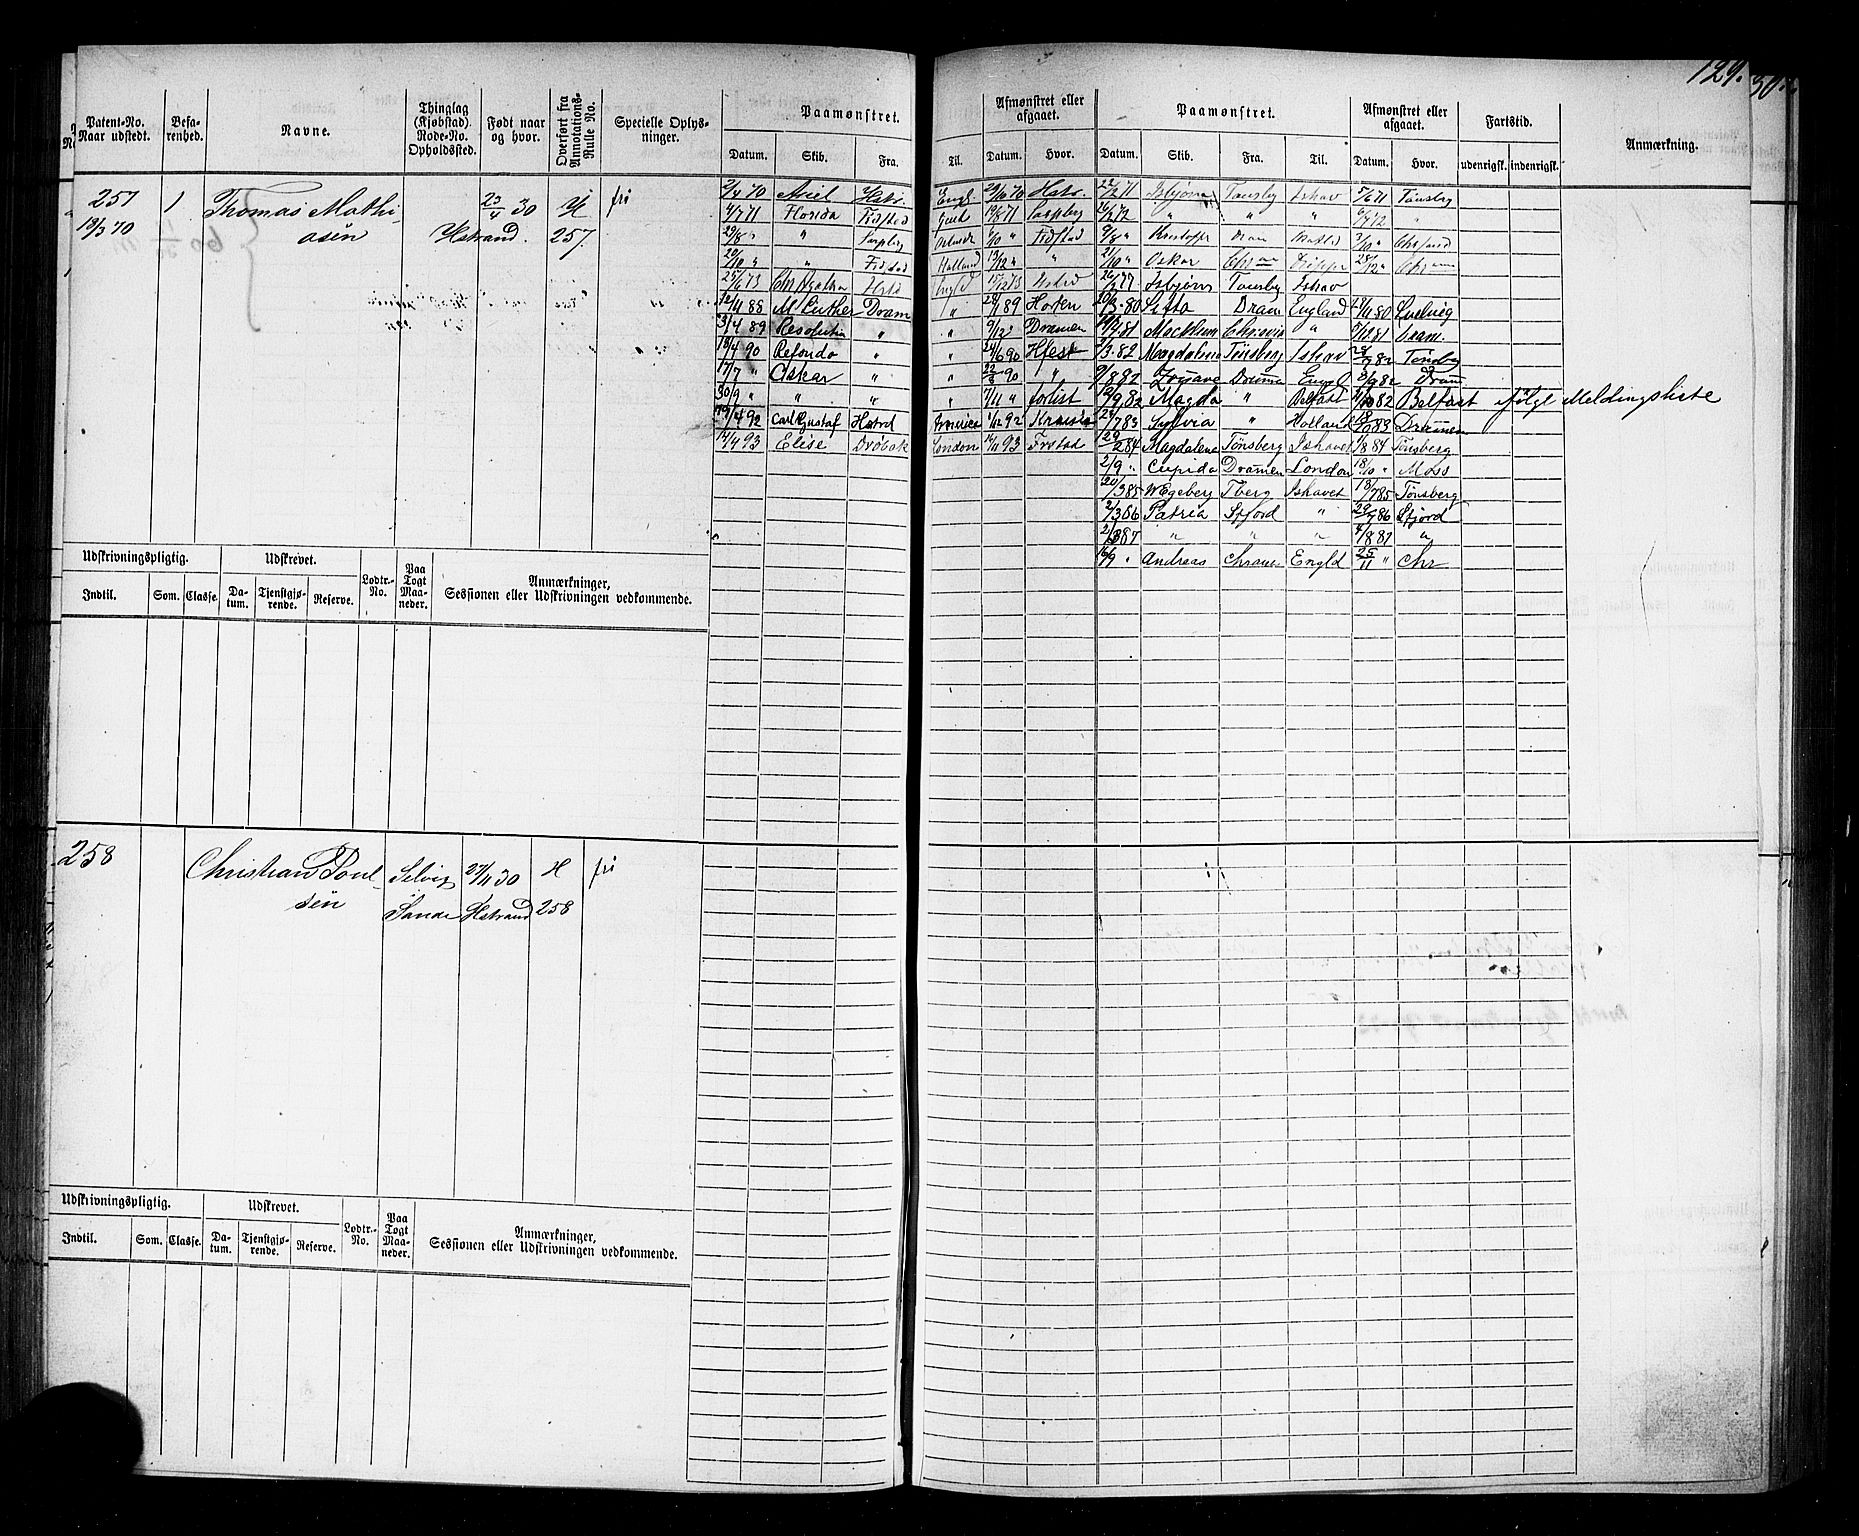 129.
Patent-No. Naar udstedt. Befarenhed. Navne. Thinglag (Kjøbstad) Rode-No. Opholdssted. Født naar og hvor. Overført fra Annotations-Rulle No. Specielle Oplysninger. Paamønstret. Afmønstret eller afgaaet. Paamønstret. Afmønstret eller afgaaet. Fartstid. Anmærkning.
Datum. Skib. Fra. Til. Datum. Hvor. Datum. Skib. Fra. Til. Datum. Hvor. udenrigsk. indenrigsk.
257 1 Thomas Mathi 23/4 30 H fri
19/3 70 asen Hstrand. 257.
2/4 70 Ariel Hstr. Engl. 29/10 70 Hstr.
4/7 71 Florida Fidstad 19/8 71 Sarpbrg
29/8 " " Sarpbrg /10 " Fidstad
20/10 " " Fidstad Holland 13/12 " "
25/6 73 Chr Agatha Hstd Engld 15/12 73 Hstrd
12/11 88 M. Luther Dram " 28/1 89 Horten
3/4 89 Resolutin " 9/12 " Dramen
18/4 90 Refondo " " 24/6 90 Hfest
17/7 " Oskar " " 22/8 90 "
30/9 " " " " 7/11 " forlist
19/4 92 Carl Gustaf Hstrd America 1/12 92 Krania
14/4 93 Elise Drøbak London 16/11 93 Frstad
22/2 71 Isbjørn Tønsby Ishav 5/6 71 Tønsby
26/2 72 " " " 6/7 72 "
9/8 " Kristoffer Dram 2/10 " Chrsand
21/10 " Oskar Chrania Dieppe 28/12 " Chrania
26/2 77 Isbjørn Tønsby Ishav
20/3 80 Sitta Dram England 17/11 80 Svelvig
14/4 81 Macklum Chrsvia " 8/12 81 Dram.
2/3 82 Magdalena Tønsberg Ishav 28/7 82 Tønsby
9/8 82 Dramen Engl 8/9 82 Dram
12/9 82 Magda " Belfast 11/10 82 Belfast ifølge Meldingsliste
24/7 83 Sylvia " Holland 19/10 83 Dramen
29/2 84 Magdalena Tønsberg Ishavet 1/8 84 Tønsberg
2/9 " Cupido Dramen London 18/10 " Moss
20/3 85 W Egeberg Tberg Ishavet 18/7 85 Tønsberg
2/3 86 Patria Sfjord " 29/7 86 Sfjord
2/3 87 " " " 4/8 87 "
16/9 " Andreas Chrania Engld 25/11 " Chr
Udskrivningspligtig. Udskrevet. Lodtr.-No. Paa Togt Maaneder. Anmærkninger, Sessionen eller Udskrivningen vedkommende.
Indtil. Som. Classe. Datum. Tjenstgjørende. Reserve.
258 Christian Poul Selvig 27/11 30 H fri
sen Sande Hstrand 258
Udskrivningspligtig. Udskrevet. Lodtr.-No. Paa Togt Maaneder. Anmærkninger, Sessionen eller Udskrivningen vedkommende.
Indtil. Som. Classe. Datum. Tjenstgjørende. Reserve.